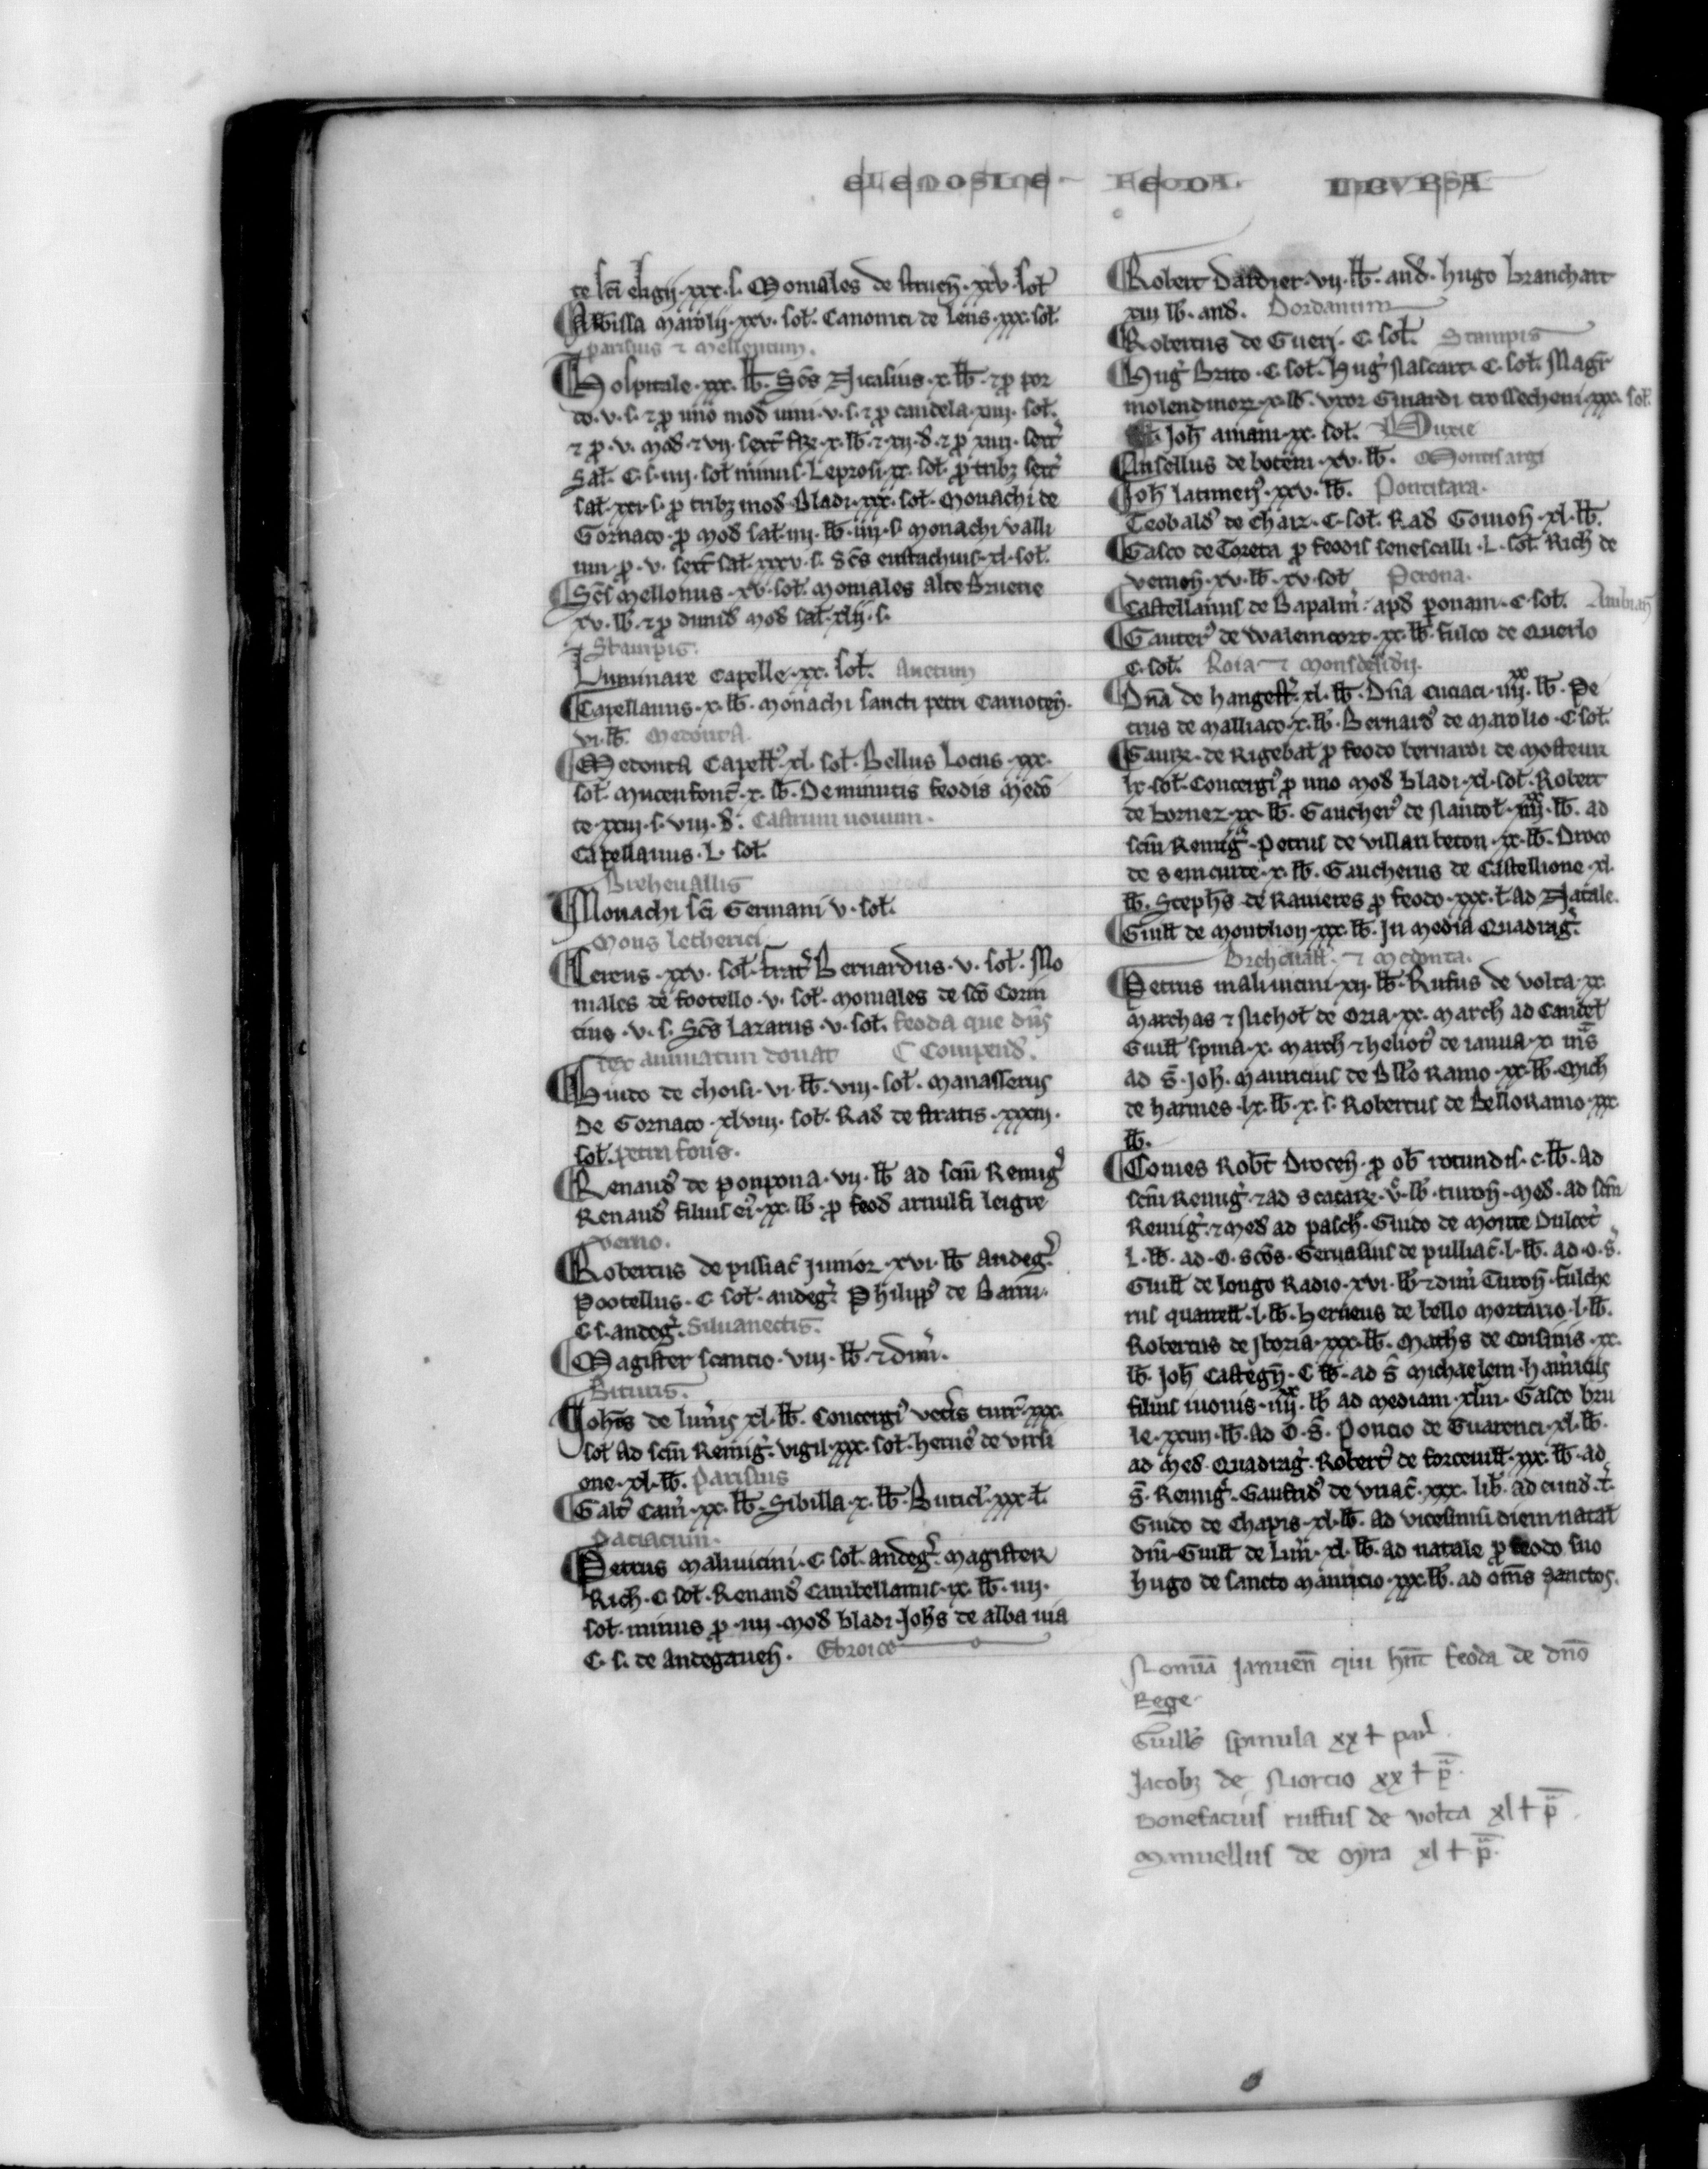 ELEMOSINE FEODA. INCURSA
te sc̄i eligii .xxx. s. Moniales de struen̄ .xxv. sol̄
Abbissa Marolii .xxv. sol̄. Canonici de lens .xxx. sol̄.
parisius ⁊ Mellentum.
Hospitale .xxx. lb̄. Sc̄s Nicasius .x. lb̄. ⁊ p̄ por
co .v. s. ⁊ p̄ uno mod̄ uini .v. s. ⁊ p̄ candela .xiiii. sol̄.
⁊ p̄ .v. mod̄ ⁊ vii. sext̄ .x. lb̄. ⁊ xii. d̄. ⁊ p̄ xiiii. sext̄
Sal̄. C. s. iiii. sol̄ minus. Leprosi .xx. sol̄. p̄ tribꝫ sext̄
sal̄. xxi. s. p̄ tribꝫ mod̄ Bladi .xxx. sol̄. Monachi de
Gornaco p̄ mod̄ sal̄. iiii. lb̄. iiii. s. monachi valli
um p̄ .v. sext̄ sal̄. xxxv. s. Sc̄s eustachius .xl. sol̄.
Sc̄s Mellonus .xv. sol̄. moniales alte Bruerie
xv. lb̄. ⁊ p̄ dimid̄ mod̄ sal̄. xlii. s.
Stampis.
Luminare Capelle .xx. sol̄. Anetum
Capellanus .x. lb̄. monachi sancti petri Carnoten̄.
vi. lb̄. Medonta.
Medonta Capell̄ .xl. sol̄. Bellus Locus .xxx.
sol̄. Mucenfont̄ .x. lb̄. De minutis feodis Medō
te .xxiii. s. viii. d̄. Castrum nouum.
Capellanus .L. sol̄.
Breheuallis
Monachi sc̄i Germani v. sol̄.
Mons letherici
Cereus .xxv. sol̄. frat̄ Bernardus .v. sol̄. Mo
niales de footello .v. sol̄. moniales de sc̄o Corn
tius .v. s. Sc̄s Lazarus .v. sol̄. feoda que dn̄s
rex annuatim donat C Compend̄.
Guido de choisi .vi. lb̄. viii. sol̄. Manasserus
De Gornaco .xlviii. sol̄. Rad̄ de stratis .xxxiii.
sol̄. petrifons.
Renaud̄ de ponpona .vii. lb̄ ad sc̄m Remiḡ
Renaud̄ filius ei᾽ .xx. lb̄. p̄ feod̄ arnulfi leigre
Verno.
Robertus de pissiac̄ Junior .xvi. lb̄ andeḡ.
Pootellus .C. sol̄. andeḡ. Philipp᾽ de Barru.
C. s. andeḡ. Siluanectis.
Magister scancio .viii. lb̄ ⁊ dim̄.
Bituris.
Joh̄s de lineriis xl. lb̄. Concergi᾽ vet̄is turr̄ .xxx.
sol̄ ad sc̄m Remiḡ. vigil .xxx. sol̄. herue᾽ de virsi
one .xl. lb̄. Parisius
Galt̄ Cam̄ .xx. lb̄. Sibilla .x. lb̄. Buticl̄ .xxx. t̄.
Paciacum.
Petrus maluicini .C. sol̄. andeḡ. magister
Rich .C. sol̄. Renaud̄ Cambellanus .ix. lb̄. iiii.
sol̄. minus p̄ .iiii. mod̄ bladi. Joh̄s de alba uia
C. s. de Andegaueh̄. Ebroice
Robert Dardier .vii. lb̄. and̄. hugo branchart
xiii lb̄. and̄. Dordanum
Robertus de Gueri .C. sol̄. Stampis
Huḡ Brito .C. sol̄. Huḡ Nascart .C. sol̄. Magr̄
molendinor̄ .x. lb̄. vxor Guiardi trossecheni .xxx. sol̄.
Joh̄ aniani .xx. sol̄. Duxie
Ansellus de botern .xv. lb̄. Montisargi
Joh̄ latimer᾽ .xxv. lb̄. Pontisara.
Teobald᾽ de Charz .C. sol̄. Rad̄ Gomoh̄ .xl. lb̄.
Gasco de Toreta p̄ feodis senescalli .L. sol̄. Rich̄ de
vernoh̄ .xv. lb̄. xv. sol̄ Perona.
Castellanus de Bapalm̄ apd̄ ponam .C. sol̄. Ambian̄
Gauter᾽ de Walemcort .xx. lb̄. fulco de Querlo
C. sol̄. Roia ⁊ Monsdesid̄ii.
Dn̄a de hangest̄ .xl. lb̄. Dn̄a cuciaci .iiii^xx. lb̄. Pe
trus de Malliaco .x. lb̄. Bernard᾽ de Marolio .C. sol̄.
Gautr̄ de Rigebal̄ p̄ feodo bernardi de Mosteun
lx. sol̄. Concergi᾽ p̄ uno mod̄ bladi .xl. sol̄. Robert
de bornez .xx. lb̄. Gaucher᾽ de Nantol̄ .iiii^xx. lb̄. ad
sc̄m Remiḡ. Petrus de villari beton .x. lb̄. Droco
de semcurte .x. lb̄. Gaucherus de Castellione .xl.
lb̄. Steph̄s de Rauieres p̄ feodo .xxx. t̄. ad Natale.
Guill̄ de Monthon .xxx. lb̄. In media Quadraḡ.
Breheuall̄. ⁊ Medonta.
Petrus maluicini .xii. lb̄. Rufus de volta .xx.
Marchas ⁊ Nichol̄ de Oria .xx. March ad Candel̄
Guill̄ spina .x. March ⁊ heliot᾽ de ianua .x. m̄s
ad S̄. Joh̄. Mauricius de Bll̄o Ramo .xx. lb̄. Mich
de harmes .lx. lb̄. x. s. Robertus de Belloramo .xxx.
lb̄.
Comes Rob̄t Drocen̄. p̄ ob̄ rotundis .c. lb̄. ad
sc̄m Remiḡ. ⁊ ad scacar̄ .v^c. lb̄. turoh̄. Med̄. ad sc̄m
Remiḡ. ⁊ med̄ ad pasch̄. Guido de Monte Dulcet̄
L. lb̄. ad. O. sc̄os. Geruasius de pulliac̄ .l. lb̄. ad .o. s̄.
Guill̄ de longo Radio .xvi. lb̄ ⁊ dim̄ Turoh̄. fulche
rus quarrell̄ .l. lb̄. herueus de bello mortario .l. lb̄.
Robertus de Storia .xxx. lb̄. Math̄s de Corsinis .xx.
lb̄. Joh̄ Castegh̄ .C. lb̄. ad S̄ Michaelem. hamicus
filius iuonis .iiii^xx. lb̄ ad mediam .xlm̄. Gasco bru
le .xxiiii. lb̄. ad. O. S̄. Poncio de Guarenci .xl. lb̄.
ad med̄. Quadraḡ. Robert᾽ de forceuill̄ .xxx. lb̄. ad
S̄. Remiḡ. Gaufrid᾽ de viriac̄ .xxx. lib̄. ad eund̄. t̄.
Guido de Chapis .xl. lb̄. ad vicesimū diem natal̄
dm̄. Guill̄ de Lin̄ .xl. lb̄. ad natale p̄ feodo suo
hugo de sancto Mauricio .xxx. lb̄. ad om̄s sanctos.
Nomīa Januen̄ qui hn̄t feoda de dn̄o
Rege.
Guill̄s spinula xx ł par̄.
Jacobꝫ de Niorcio xx ł p̄.
Bonefacius ruffus de volta xl ł p̄.
Manuellus de Oria xl ł p̄.